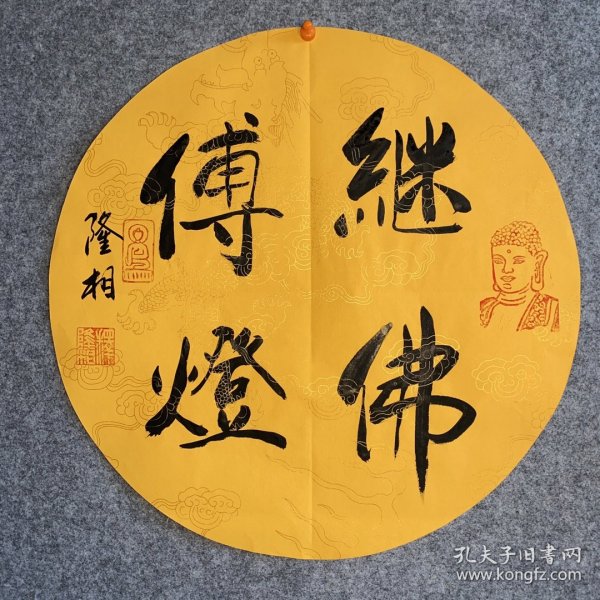 继佛
傳燈
隆相
孔夫子旧书网
www.kongfz.com